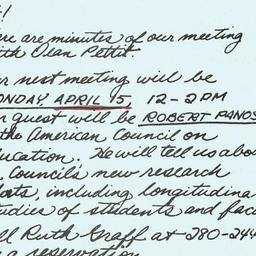 !
ere are minutes of our meeting
ith Dean Pettit.
r next meeting will be
ONDAY, APRIL 15 12-2 PM
r guest will be ROBERT PANOS
the American Council on
ducation. He will tell us abou
Council's new research
orts, including longitudina
tudies of students and facu
ll Ruth Graff at 280-244
a reservation